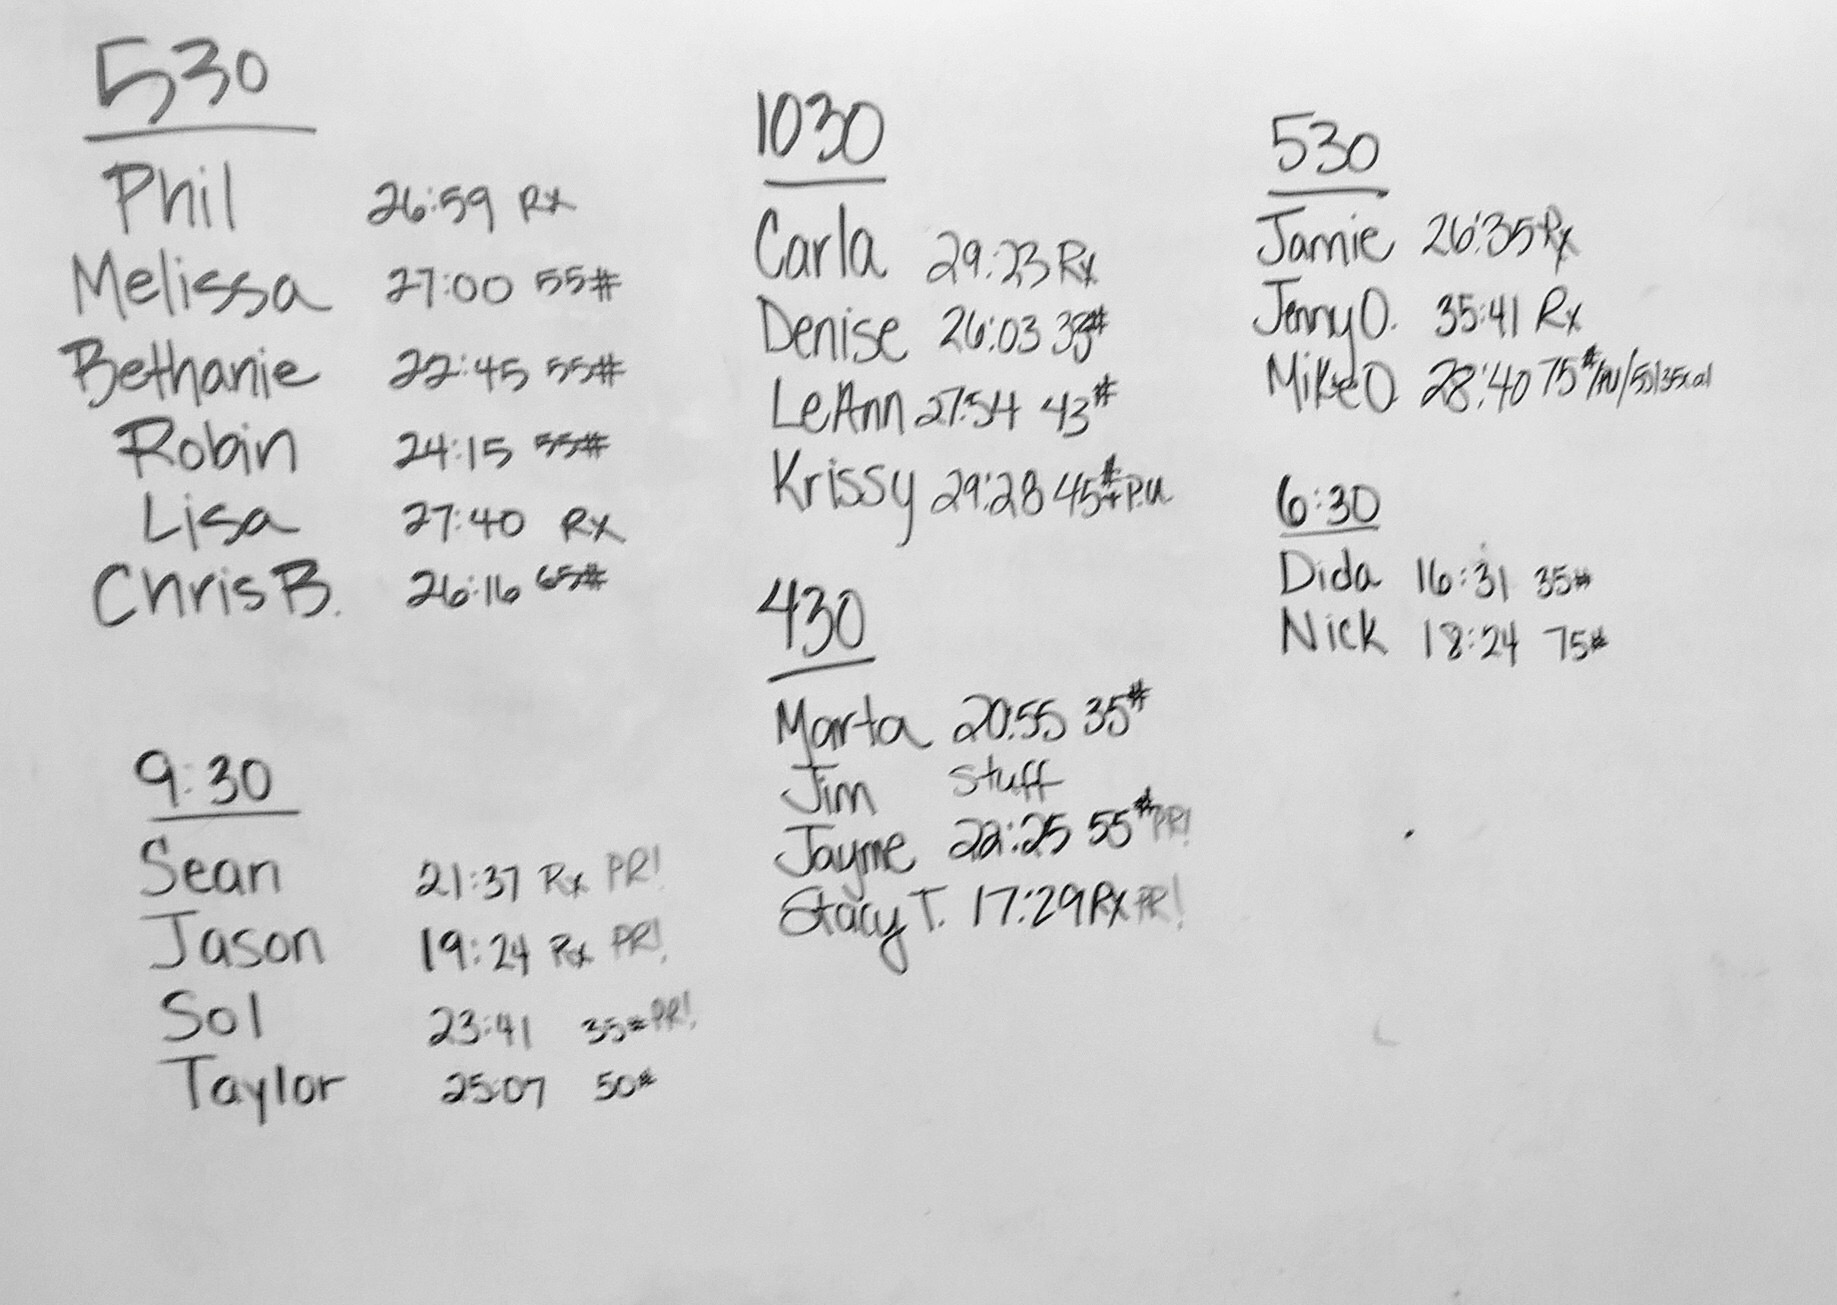 530
Phil 26:59 Rx
Melissa 27:00 55#
Bethanie 22:45 55#
Robin 24:15 55#
Lisa 27:40 Rx
Chris B. 26:16 65#
9:30
Sean 21:37 Rx PR!
Jason 19:24 Rx PR!
Sol 23:41 35# PR!
Taylor 25:07 50#
1030
Carla 29:23 Rx
Denise 26:03 33#
LeAnn 27:54 43#
Krissy 29:28 45# + P.U.
430
Marta 20:55 35#
Jim stuff
Jayme 22:25 55# PR!
Stacy T. 17:29 Rx PR!
530
Jamie 26:35 Rx
Jenny O. 35:41 Rx
Mike O. 28:40 75#
6:30
Dida 16:31 35#
Nick 18:24 75#